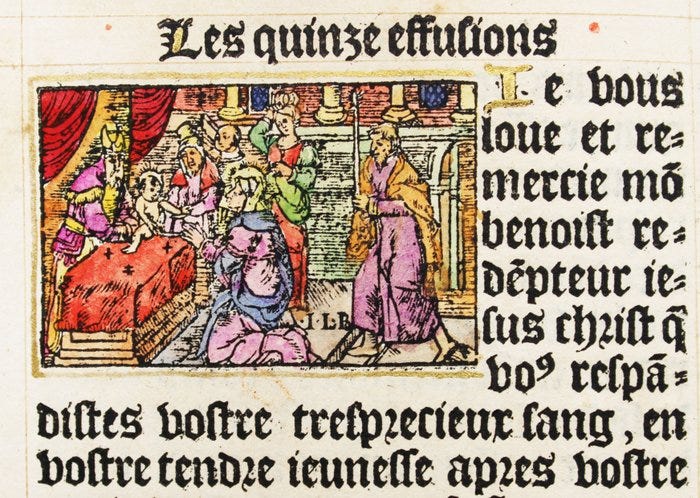 Les quinze effusions
Ie vous
loue et re=
mercie mõ
benoist re=
dẽpteur ie=
sus christ q̃
vo⁹ respã=
distes vostre tresprecieux sang, en
vostre tendre ieunesse apres vostre
I·L·B